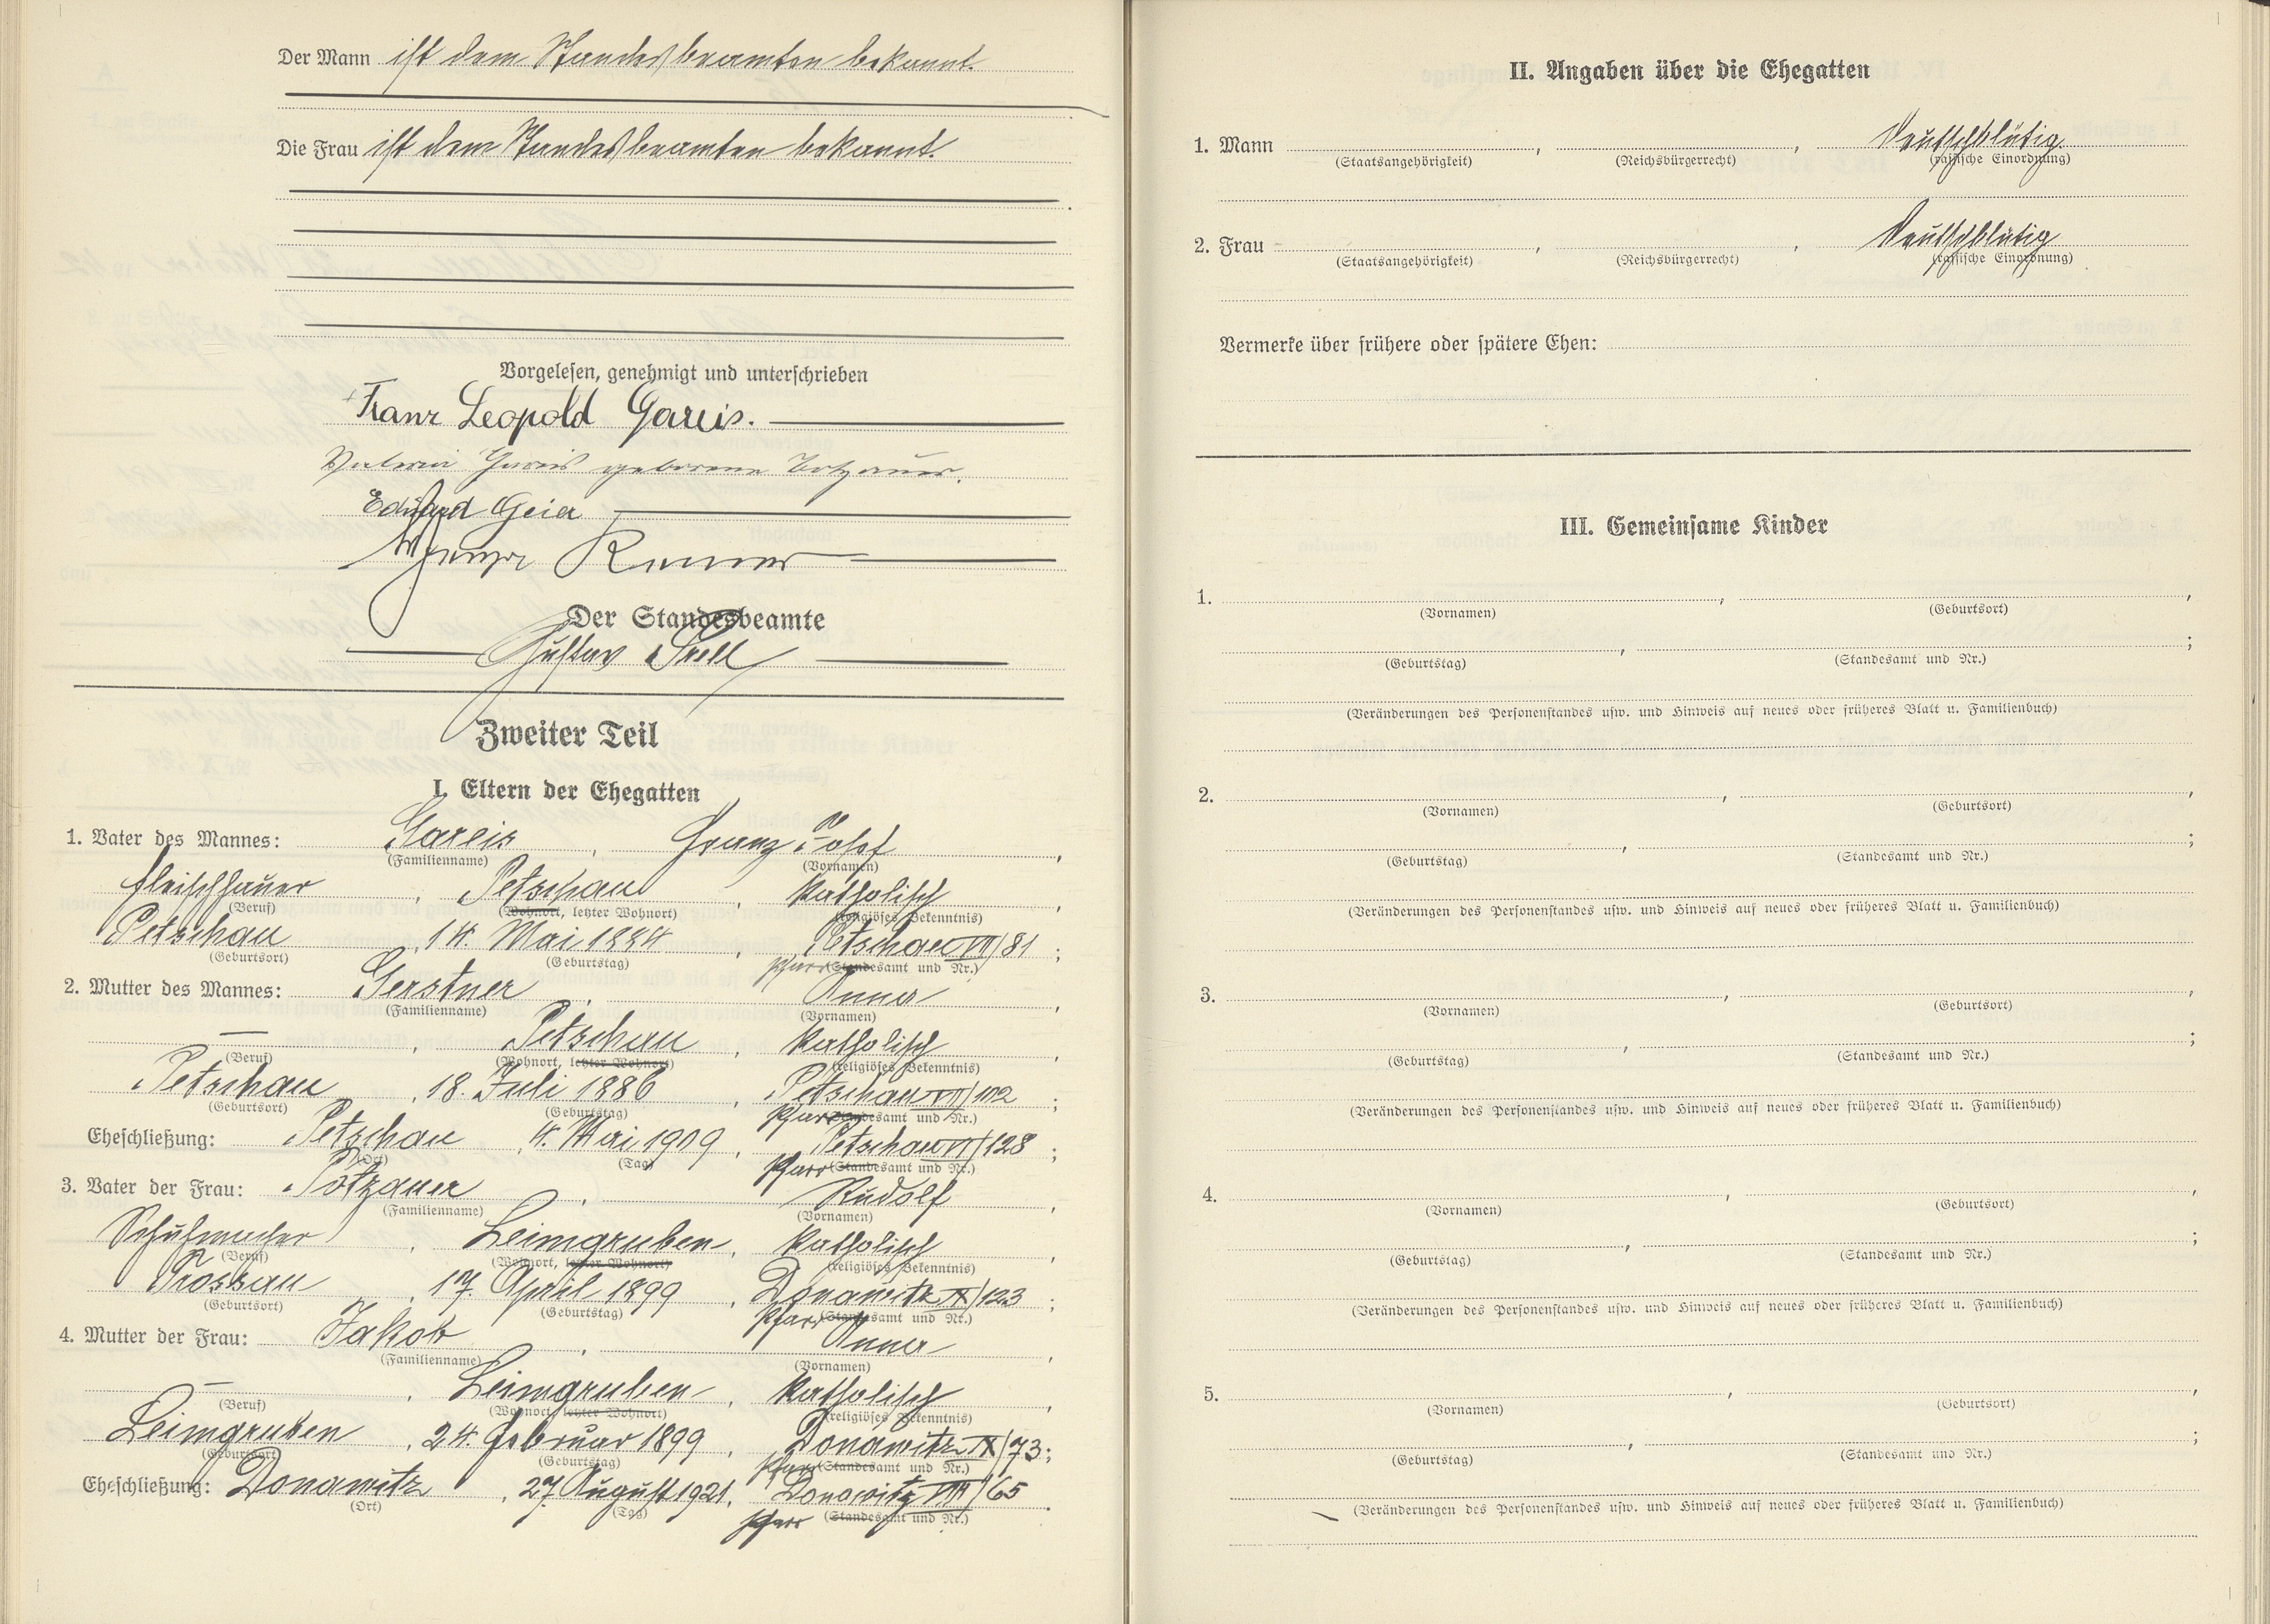 Der Mann ist dem Standesbeamten bekannt.
Die Frau ist dem Standesbeamten bekannt.
Vorgelesen, genehmigt und unterschrieben
Franz Leopold Gareis.
Gareis geborene
Eduard Geier
Der Standesbeamte
Gustav
Zweiter Teil
I. Eltern der Ehegatten
1. Vater des Mannes: Gareis, Franz Josef,
(Familienname) (Vornamen)
Fleischhauer, Petschau, katholisch,
(Beruf) (Wohnort, letzter Wohnort) (religiöses Bekenntnis)
Petschau, 14. Mai 1884, Petschau VII/81;
(Geburtsort) (Geburtstag) Pfarr (Standesamt und Nr.)
2. Mutter des Mannes: Gerstner, Anna,
(Familienname) (Vornamen)
—, Petschau, katholisch,
(Beruf) (Wohnort, letzter Wohnort) (religiöses Bekenntnis)
Petschau, 18. Juli 1886, Petschau VII/102;
(Geburtsort) (Geburtstag) Pfarr (Standesamt und Nr.)
Eheschließung: Petschau, 4. Mai 1909, Petschau VI/128;
(Ort) (Tag) Pfarr (Standesamt und Nr.)
3. Vater der Frau: Pötzauer, Rudolf,
(Familienname) (Vornamen)
Schuhmacher, Leimgruben, katholisch,
(Beruf) (Wohnort, letzter Wohnort) (religiöses Bekenntnis)
Trossau, 17. April 1899, Donawitz X/123;
(Geburtsort) (Geburtstag) Pfarr (Standesamt und Nr.)
4. Mutter der Frau: Jakob, Anna,
(Familienname) (Vornamen)
—, Leimgruben, katholisch,
(Beruf) (Wohnort, letzter Wohnort) (religiöses Bekenntnis)
Leimgruben, 24. Februar 1899, Donawitz X/73;
(Geburtsort) (Geburtstag) Pfarr (Standesamt und Nr.)
Eheschließung: Donawitz, 27. August 1921, Donawitz VIII/65.
(Ort) (Tag) Pfarr (Standesamt und Nr.)
II. Angaben über die Ehegatten
1. Mann , , Deutschblütig
(Staatsangehörigkeit) (Reichsbürgerrecht) (rassische Einordnung)
2. Frau , , Deutschblütig
(Staatsangehörigkeit) (Reichsbürgerrecht) (rassische Einordnung)
Vermerke über frühere oder spätere Ehen:
III. Gemeinsame Kinder
1. , ,
(Vornamen) (Geburtsort)
, ;
(Geburtstag) (Standesamt und Nr.)
(Veränderungen des Personenstandes usw. und Hinweis auf neues oder früheres Blatt u. Familienbuch)
2. , ,
(Vornamen) (Geburtsort)
, ;
(Geburtstag) (Standesamt und Nr.)
(Veränderungen des Personenstandes usw. und Hinweis auf neues oder früheres Blatt u. Familienbuch)
3. , ,
(Vornamen) (Geburtsort)
, ;
(Geburtstag) (Standesamt und Nr.)
(Veränderungen des Personenstandes usw. und Hinweis auf neues oder früheres Blatt u. Familienbuch)
4. , ,
(Vornamen) (Geburtsort)
, ;
(Geburtstag) (Standesamt und Nr.)
(Veränderungen des Personenstandes usw. und Hinweis auf neues oder früheres Blatt u. Familienbuch)
5. , ,
(Vornamen) (Geburtsort)
, ;
(Geburtstag) (Standesamt und Nr.)
(Veränderungen des Personenstandes usw. und Hinweis auf neues oder früheres Blatt u. Familienbuch)